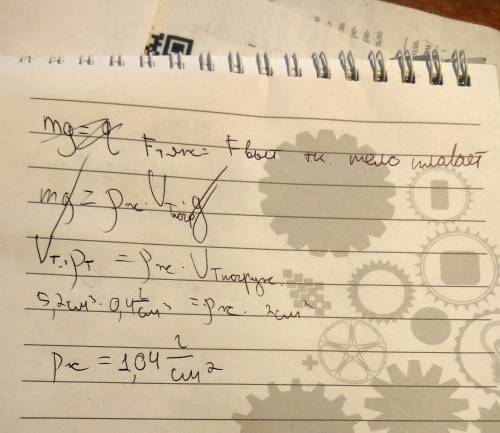 mg = q
Fтяж = Fвыт т.к. тело плавает
mg = ρж · Vт погр · g
Vт · ρт = ρж · Vт погруж.
5,2 см³ · 0,4 г/см³ = ρж · 2 см²
ρж = 1,04 г/см²